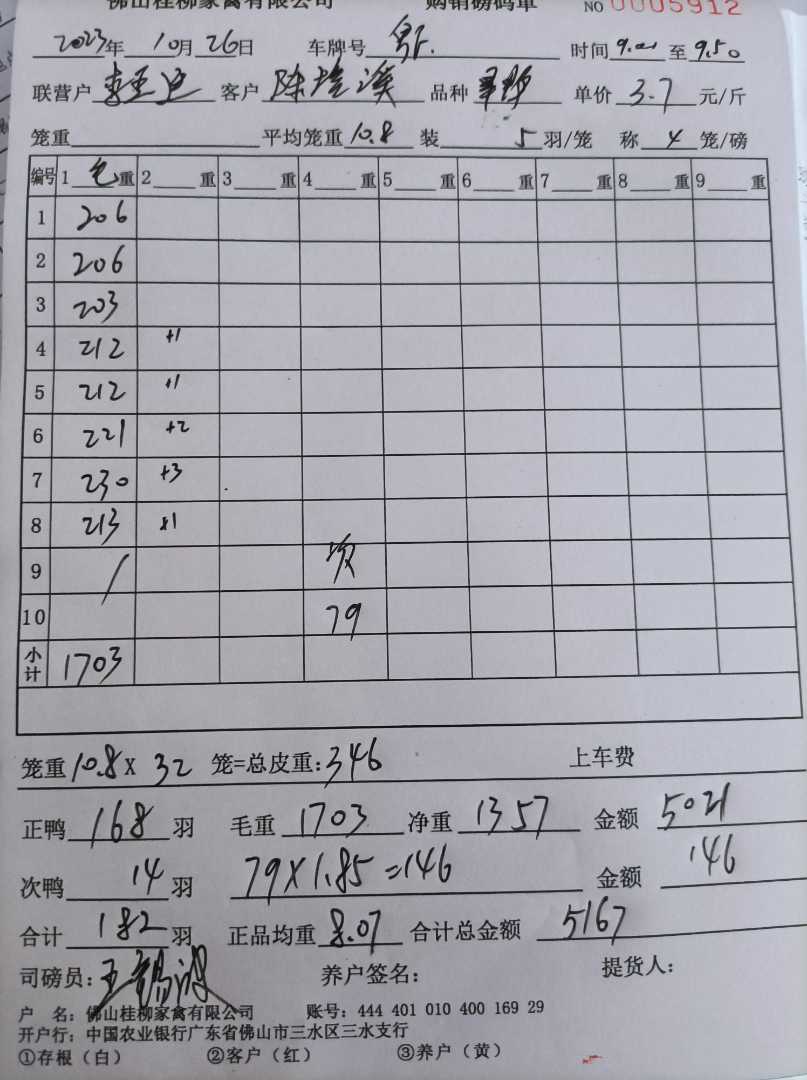 佛山桂柳家禽有限公司 购销磅码单 NO 0005912
2023年 10月 26日 车牌号 时间 9.01 至 9.50
联营户 客户 陈 溪 品种 单价 3.7 元/斤
笼重 平均笼重 10.8 装 5 羽/笼 称 4 笼/磅
编号 1 毛 重 2 重 3 重 4 重 5 重 6 重 7 重 8 重 9 重
1 206
2 206
3 203
4 212 +1
5 212 +1
6 221 +2
7 230 +3
8 213 +1
9 / 次
10 79
小计 1703
笼重 10.8 X 32 笼=总皮重: 346 上车费
正鸭 168 羽 毛重 1703 净重 1357 金额 5021
次鸭 14 羽 79 X 1.85 = 146 金额 146
合计 182 羽 正品均重 8.07 合计总金额 5167
司磅员: 王锡 养户签名: 提货人:
户 名: 佛山桂柳家禽有限公司 账号: 444 401 010 400 169 29
开户行: 中国农业银行广东省佛山市三水区三水支行
①存根（白） ②客户（红） ③养户（黄）